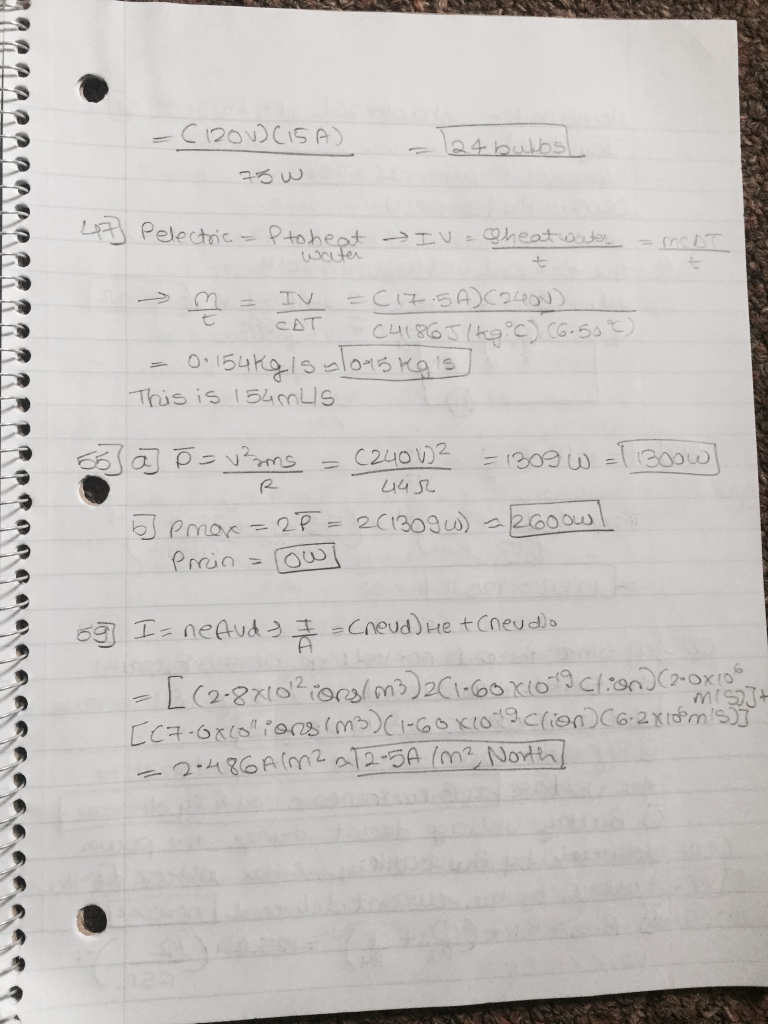 = (120V)(15A) / 75W = 24 bulbs
47] Pelectric = Ptoheat water → IV = Qheatwater / t = mcΔT / t
→ m/t = IV / cΔT = (17.5A)(240V) / (4186J/kg°C)(6.50°C)
= 0.154kg/s ≈ 0.15 kg/s
This is 154mL/s
55] a] P̅ = V²rms / R = (240V)² / 44Ω = 1309W = 1300W
b] Pmax = 2P̅ = 2(1309W) = 2600W
Pmin = 0W
59] I = neAvd → I/A = (nevd)He + (nevd)o
= [(2.8x10¹² ions/m³)2(1.60x10⁻¹⁹C/ion)(2.0x10⁶ m/s)]+
[(7.0x10¹¹ions/m³)(1.60x10⁻¹⁹C/ion)(6.2x10⁶m/s)]
= 2.486A/m² ≈ 2.5A/m², North